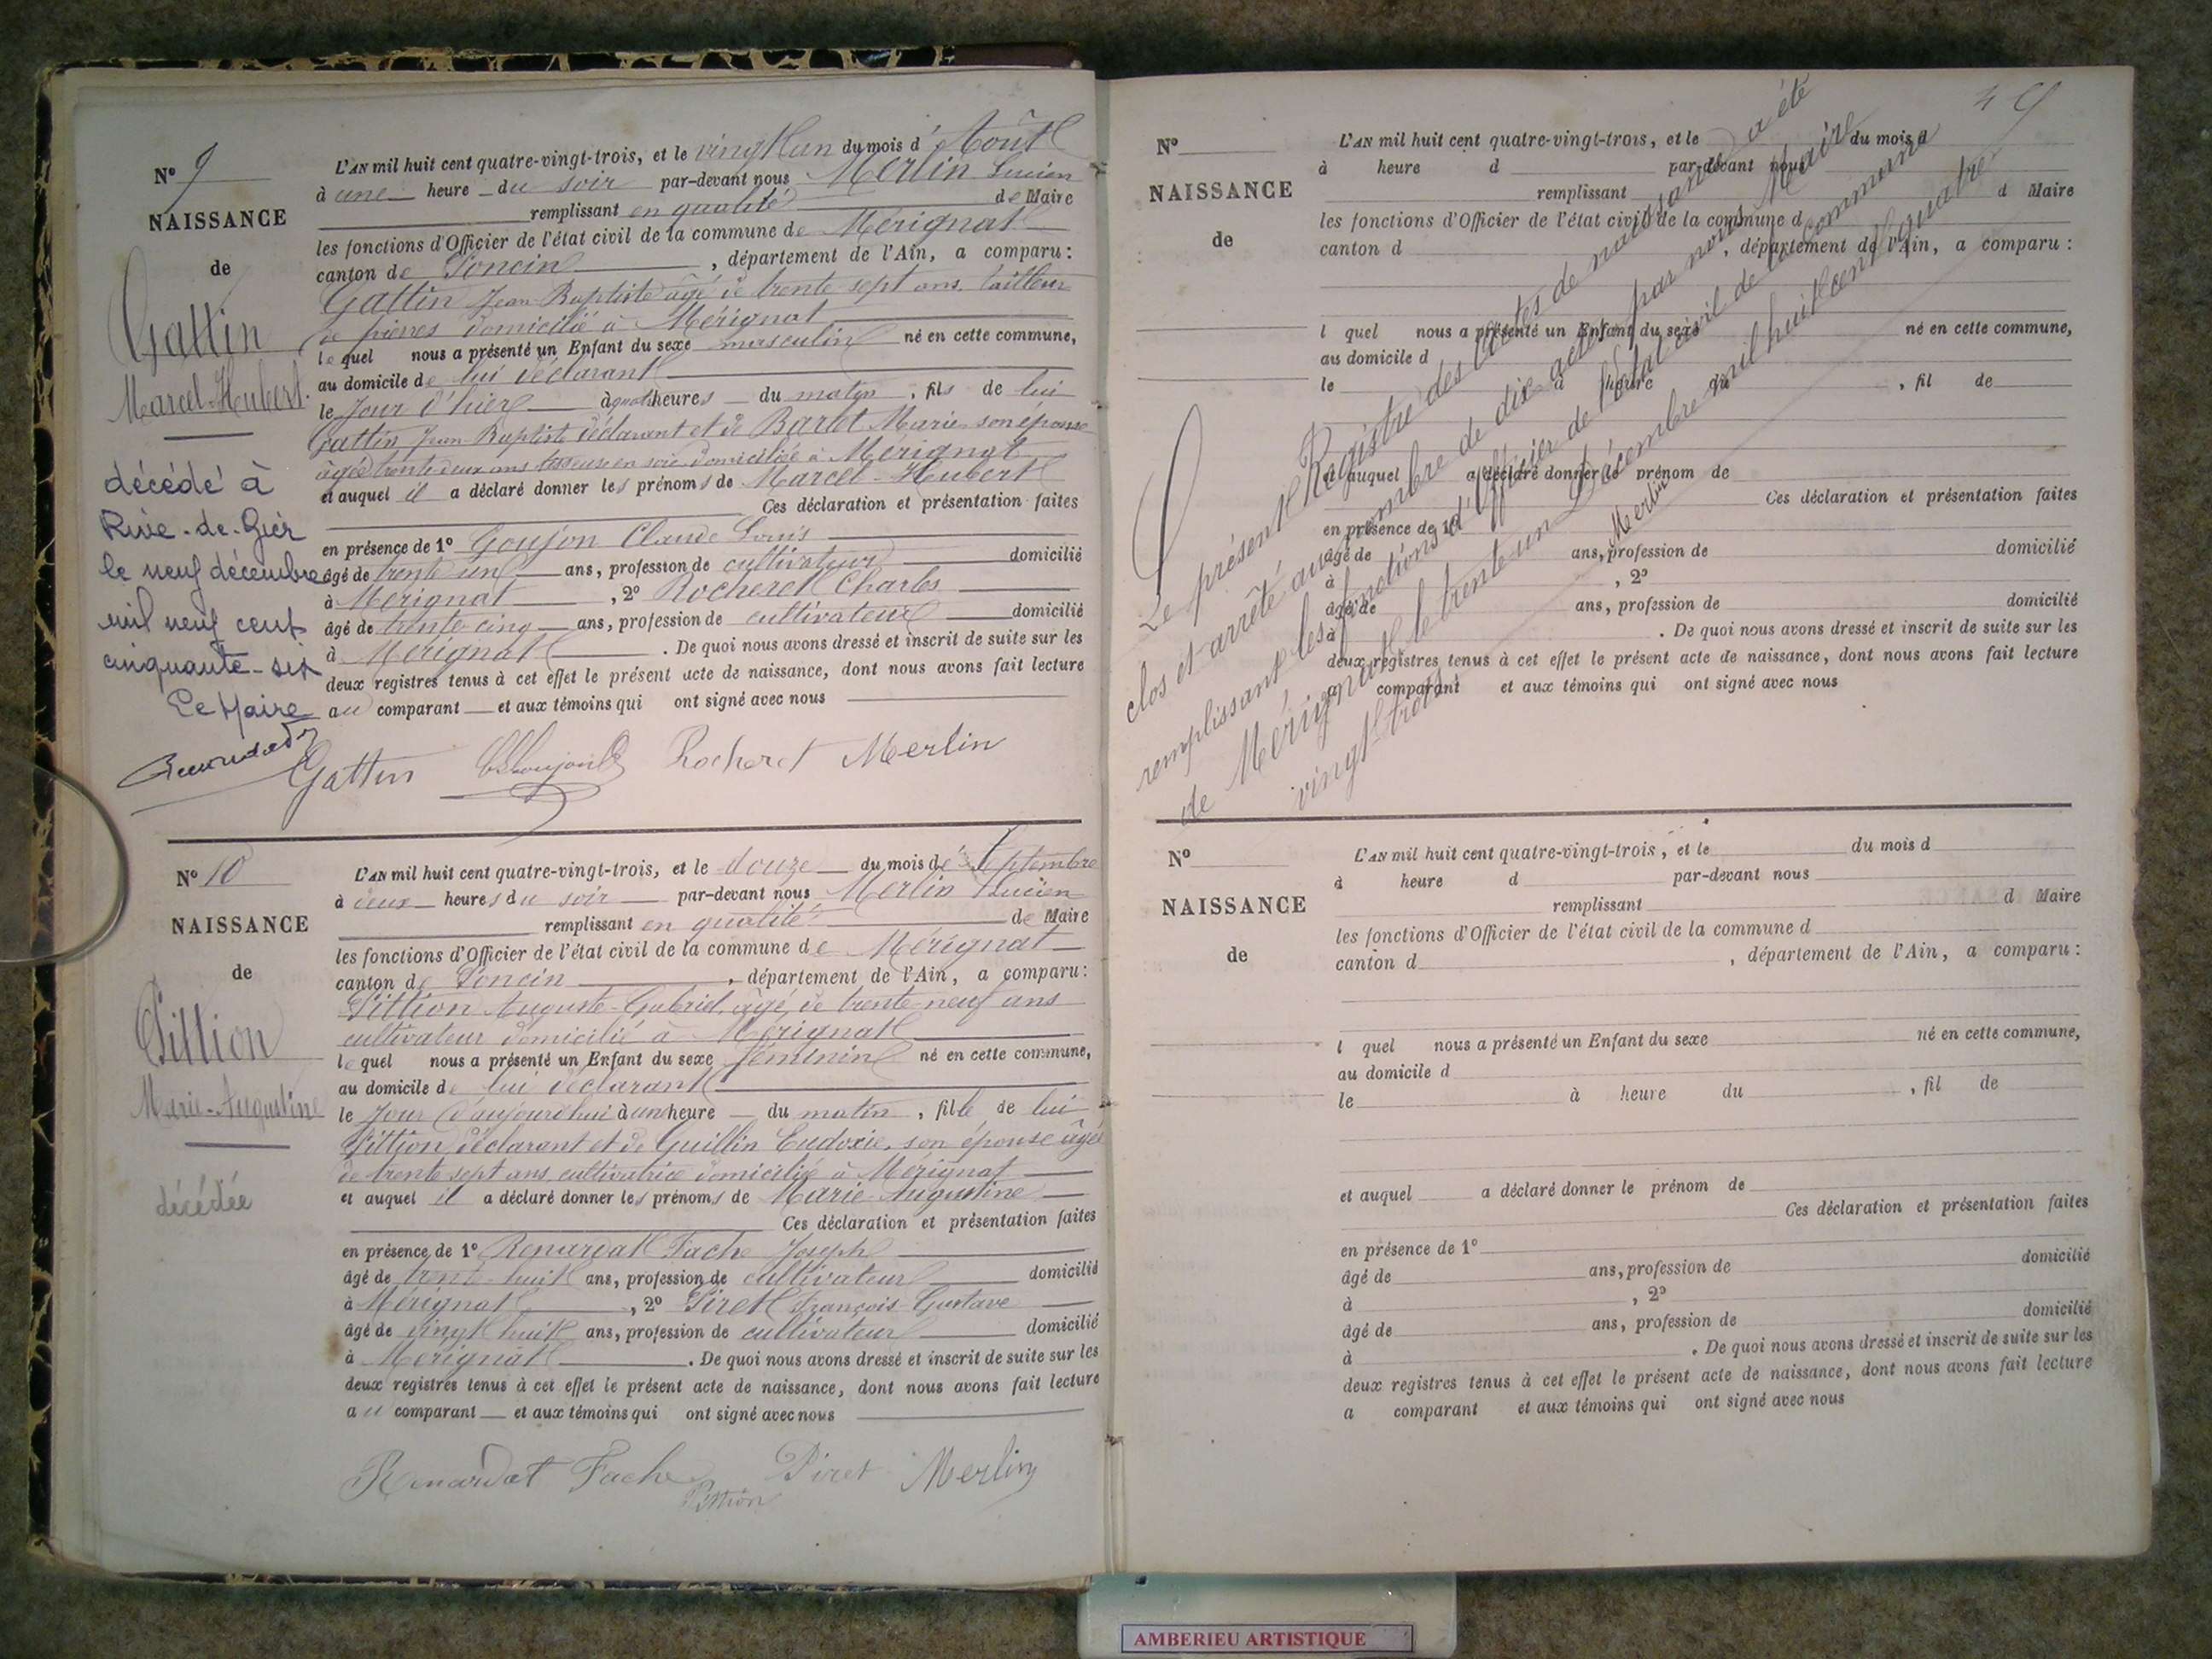 N° 9
NAISSANCE
de
Gattin
Marcel-Hubert.
décédé à
Rive-de-Gier
le neuf décembre
mil neuf cent
cinquante-six
Le Maire
L'AN mil huit cent quatre-vingt-trois, et le vingt un du mois d'Août
à une heure du soir par-devant nous Merlin Lucien
remplissant en qualité de Maire
les fonctions d'Officier de l'état civil de la commune de Mérignat
canton de Poncin, département de l'Ain, a comparu :
Gattin Jean Baptiste âgé de trente sept ans, tailleur
de pierres domicilié à Mérignat
lequel nous a présenté un Enfant du sexe masculin né en cette commune,
au domicile de lui déclarant
le jour d'hier à quatre heures du matin, fils de lui
Gattin Jean Baptiste déclarant et de Barot Marie son épouse
âgée trente deux ans tisseuse en soie domiciliée à Mérignat
et auquel il a déclaré donner les prénoms de Marcel-Hubert
Ces déclaration et présentation faites
en présence de 1° Goujon Claude Louis
âgé de trente un ans, profession de cultivateur domicilié
à Mérignat, 2° Rocheret Charles
âgé de trente-cinq ans, profession de cultivateur domicilié
à Mérignat. De quoi nous avons dressé et inscrit de suite sur les
deux registres tenus à cet effet le présent acte de naissance, dont nous avons fait lecture
au comparant et aux témoins qui ont signé avec nous
Gattin Goujon Rocheret Merlin
N° 10
NAISSANCE
de
Pittion
Marie-Augustine
décédée
L'AN mil huit cent quatre-vingt-trois, et le douze du mois de Septembre
à deux heures du soir par-devant nous Merlin Lucien
remplissant en qualité de Maire
les fonctions d'Officier de l'état civil de la commune de Mérignat
canton de Poncin, département de l'Ain, a comparu :
Pittion Auguste-Gabriel, âgé de trente-neuf ans
cultivateur domicilié à Mérignat
lequel nous a présenté un Enfant du sexe féminin né en cette commune,
au domicile de lui déclarant
le jour d'aujourd'hui à un heure du matin, fille de lui
Pittion déclarant et de Guillin Eudoxie, son épouse âgée
de trente sept ans, cultivatrice domiciliée à Mérignat
et auquel il a déclaré donner les prénoms de Marie Augustine
Ces déclaration et présentation faites
en présence de 1° Renardat Fache Joseph
âgé de trente-huit ans, profession de cultivateur domicilié
à Mérignat, 2° Piret François-Gustave
âgé de vingt huit ans, profession de cultivateur domicilié
à Mérignat. De quoi nous avons dressé et inscrit de suite sur les
deux registres tenus à cet effet le présent acte de naissance, dont nous avons fait lecture
au comparant et aux témoins qui ont signé avec nous
Renardat Fache Piret Merlin
Pittion
49
N°
NAISSANCE
de
L'AN mil huit cent quatre-vingt-trois, et le du mois d
à heure d par-devant nous
remplissant d Maire
les fonctions d'Officier de l'état civil de la commune d
canton d, département de l'Ain, a comparu :
l quel nous a présenté un Enfant du sexe né en cette commune,
au domicile d
le à heure du, fil de
et auquel a déclaré donner le prénom de
Ces déclaration et présentation faites
en présence de 1°
âgé de ans, profession de domicilié
à, 2°
âgé de ans, profession de domicilié
à. De quoi nous avons dressé et inscrit de suite sur les
deux registres tenus à cet effet le présent acte de naissance, dont nous avons fait lecture
a comparant et aux témoins qui ont signé avec nous
Le présent Registre des actes de naissance a été
clos et arrêté au nombre de dix actes par nous Maire
remplissant les fonctions d'Officier de l'état civil de la commune
de Mérignat le trente un Décembre mil huit cent quatre
vingt trois
Merlin
N°
NAISSANCE
de
L'AN mil huit cent quatre-vingt-trois, et le du mois d
à heure d par-devant nous
remplissant d Maire
les fonctions d'Officier de l'état civil de la commune d
canton d, département de l'Ain, a comparu :
l quel nous a présenté un Enfant du sexe né en cette commune,
au domicile d
le à heure du, fil de
et auquel a déclaré donner le prénom de
Ces déclaration et présentation faites
en présence de 1°
âgé de ans, profession de domicilié
à, 2°
âgé de ans, profession de domicilié
à. De quoi nous avons dressé et inscrit de suite sur les
deux registres tenus à cet effet le présent acte de naissance, dont nous avons fait lecture
a comparant et aux témoins qui ont signé avec nous
AMBERIEU ARTISTIQUE